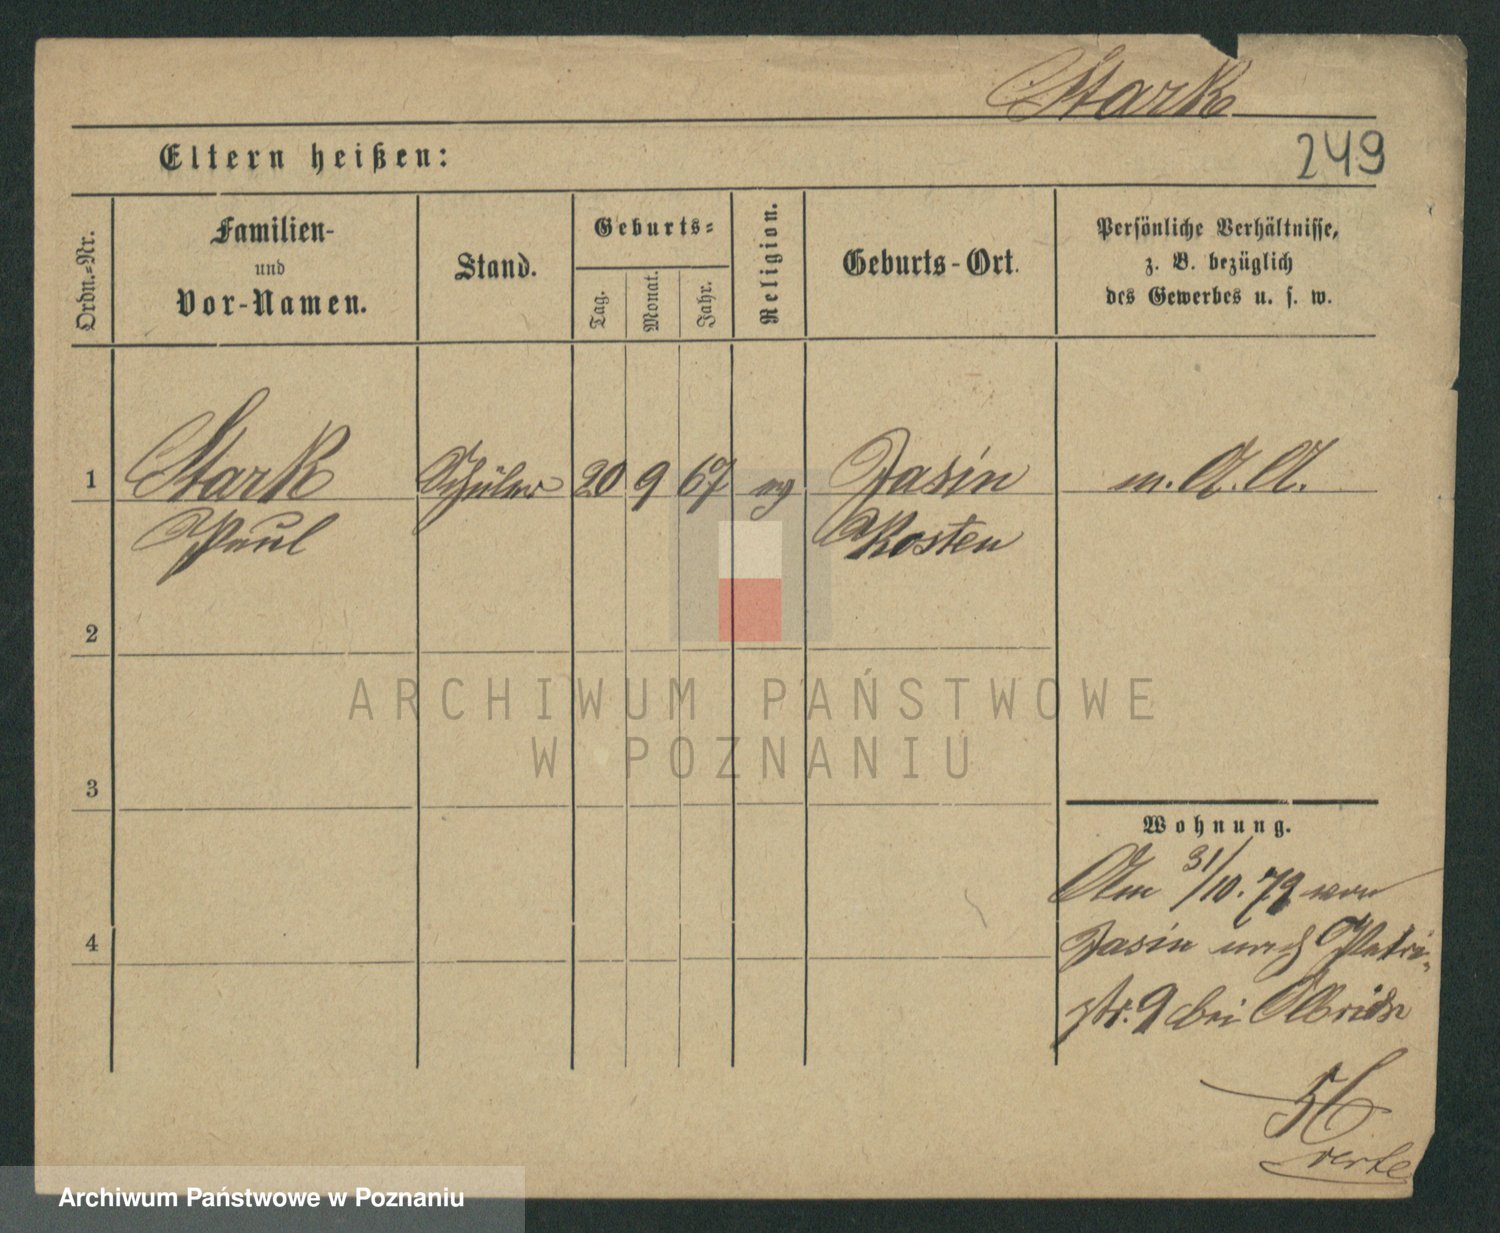 Stark
249
Eltern heißen:
Ordn.-Nr.
Familien-
und
Vor-Namen.
Stand.
Geburts-
Tag.
Monat.
Jahr.
Religion.
Geburts-Ort.
Persönliche Verhältnisse,
z. B. bezüglich
des Gewerbes u. s. w.
1
Stark Schüler 20 9 67 ev Jasin m. A. A.
Paul Kosten
2
ARCHIWUM PAŃSTWOWE
W POZNANIU
3
Wohnung.
Am 31/10. 79 von
4
Jasin nach Petri-
str. 9 bei
verte
Archiwum Państwowe w Poznaniu